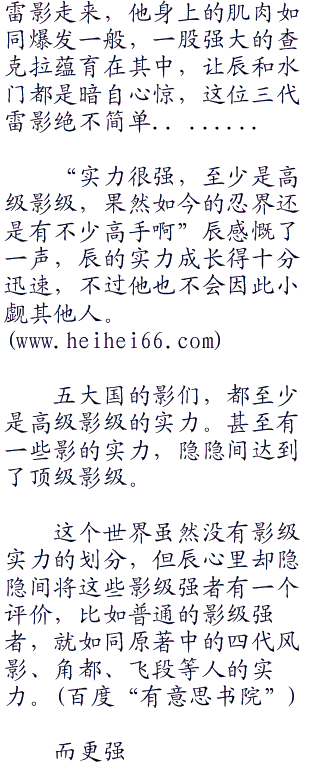 雷影走来，他身上的肌肉如
同爆发一般，一股强大的查
克拉蕴育在其中，让辰和水
门都是暗自心惊，这位三代
雷影绝不简单．．......
“实力很强，至少是高
级影级，果然如今的忍界还
是有不少高手啊”辰感慨了
一声，辰的实力成长得十分
迅速，不过他也不会因此小
觑其他人。
(www.heihei66.com)
五大国的影们，都至少
是高级影级的实力。甚至有
一些影的实力，隐隐间达到
了顶级影级。
这个世界虽然没有影级
实力的划分，但辰心里却隐
隐间将这些影级强者有一个
评价，比如普通的影级强
者，就如同原著中的四代风
影、角都、飞段等人的实
力。(百度“有意思书院”)
而更强